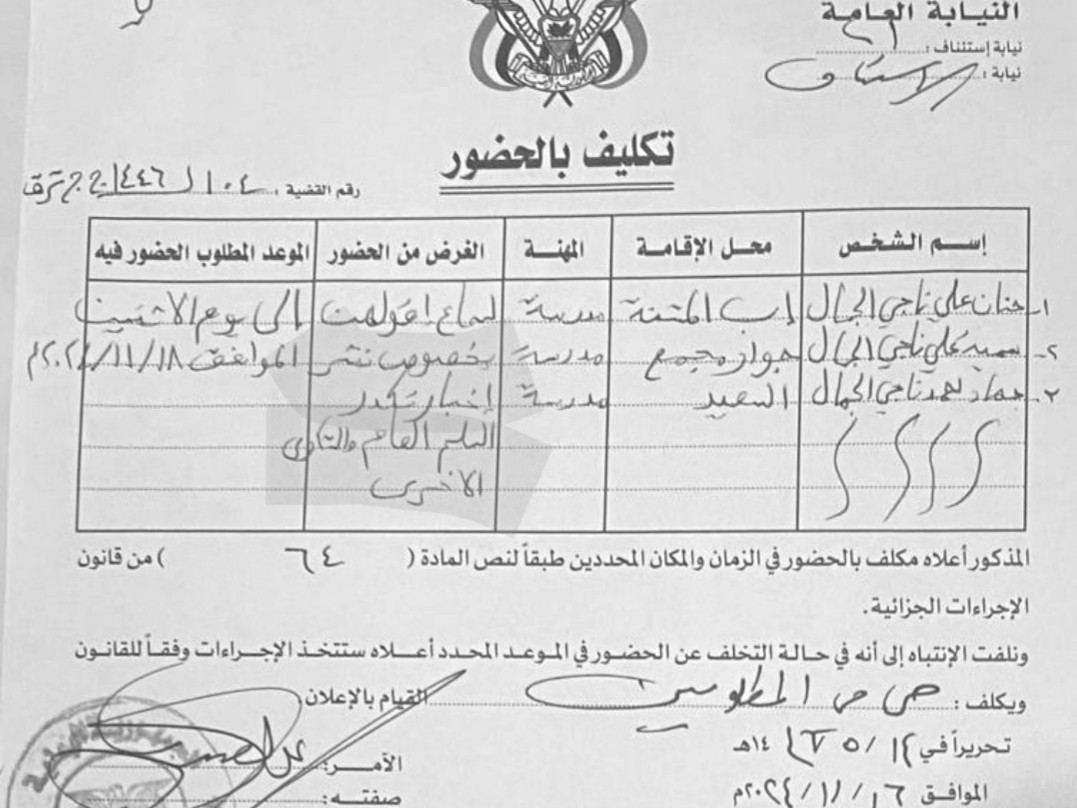 النيابة العامة
نيابة إستئناف : إب
نيابة : الاستئناف
تكليف بالحضور
رقم القضية : ١٠٤ لـ ١٤٤٦ ج ج
إسم الشخص محل الإقامة المهنة الغرض من الحضور الموعد المطلوب الحضور فيه
١- حنان علي ناجي الجمال إب المشنة مدرسة لسماع اقوالهن إلى يوم الاثنين
٢- سمية علي ناجي الجمال جوار مجمع مدرسة بخصوص نشر الموافق ١٨/١١/٢٠٢٤م
٣- محمد ناجي الجمال السعيد مدرسة إخبار تكدر
السلم العام والشكاوى
الاخرى
المذكور أعلاه مكلف بالحضور في الزمان والمكان المحددين طبقاً لنص المادة ( ٦٤ ) من قانون
الإجراءات الجزائية.
ونلفت الإنتباه إلى أنه في حالة التخلف عن الحضور في الموعد المحدد أعلاه ستتخذ الإجراءات وفقاً للقانون
ويكلف : المطلوبين القيام بالإعلان
تحريراً في ١٤/٥/١٤٤٦هـ
الموافق ١٦/١١/٢٠٢٤م
الآمـر:
صفتـه: